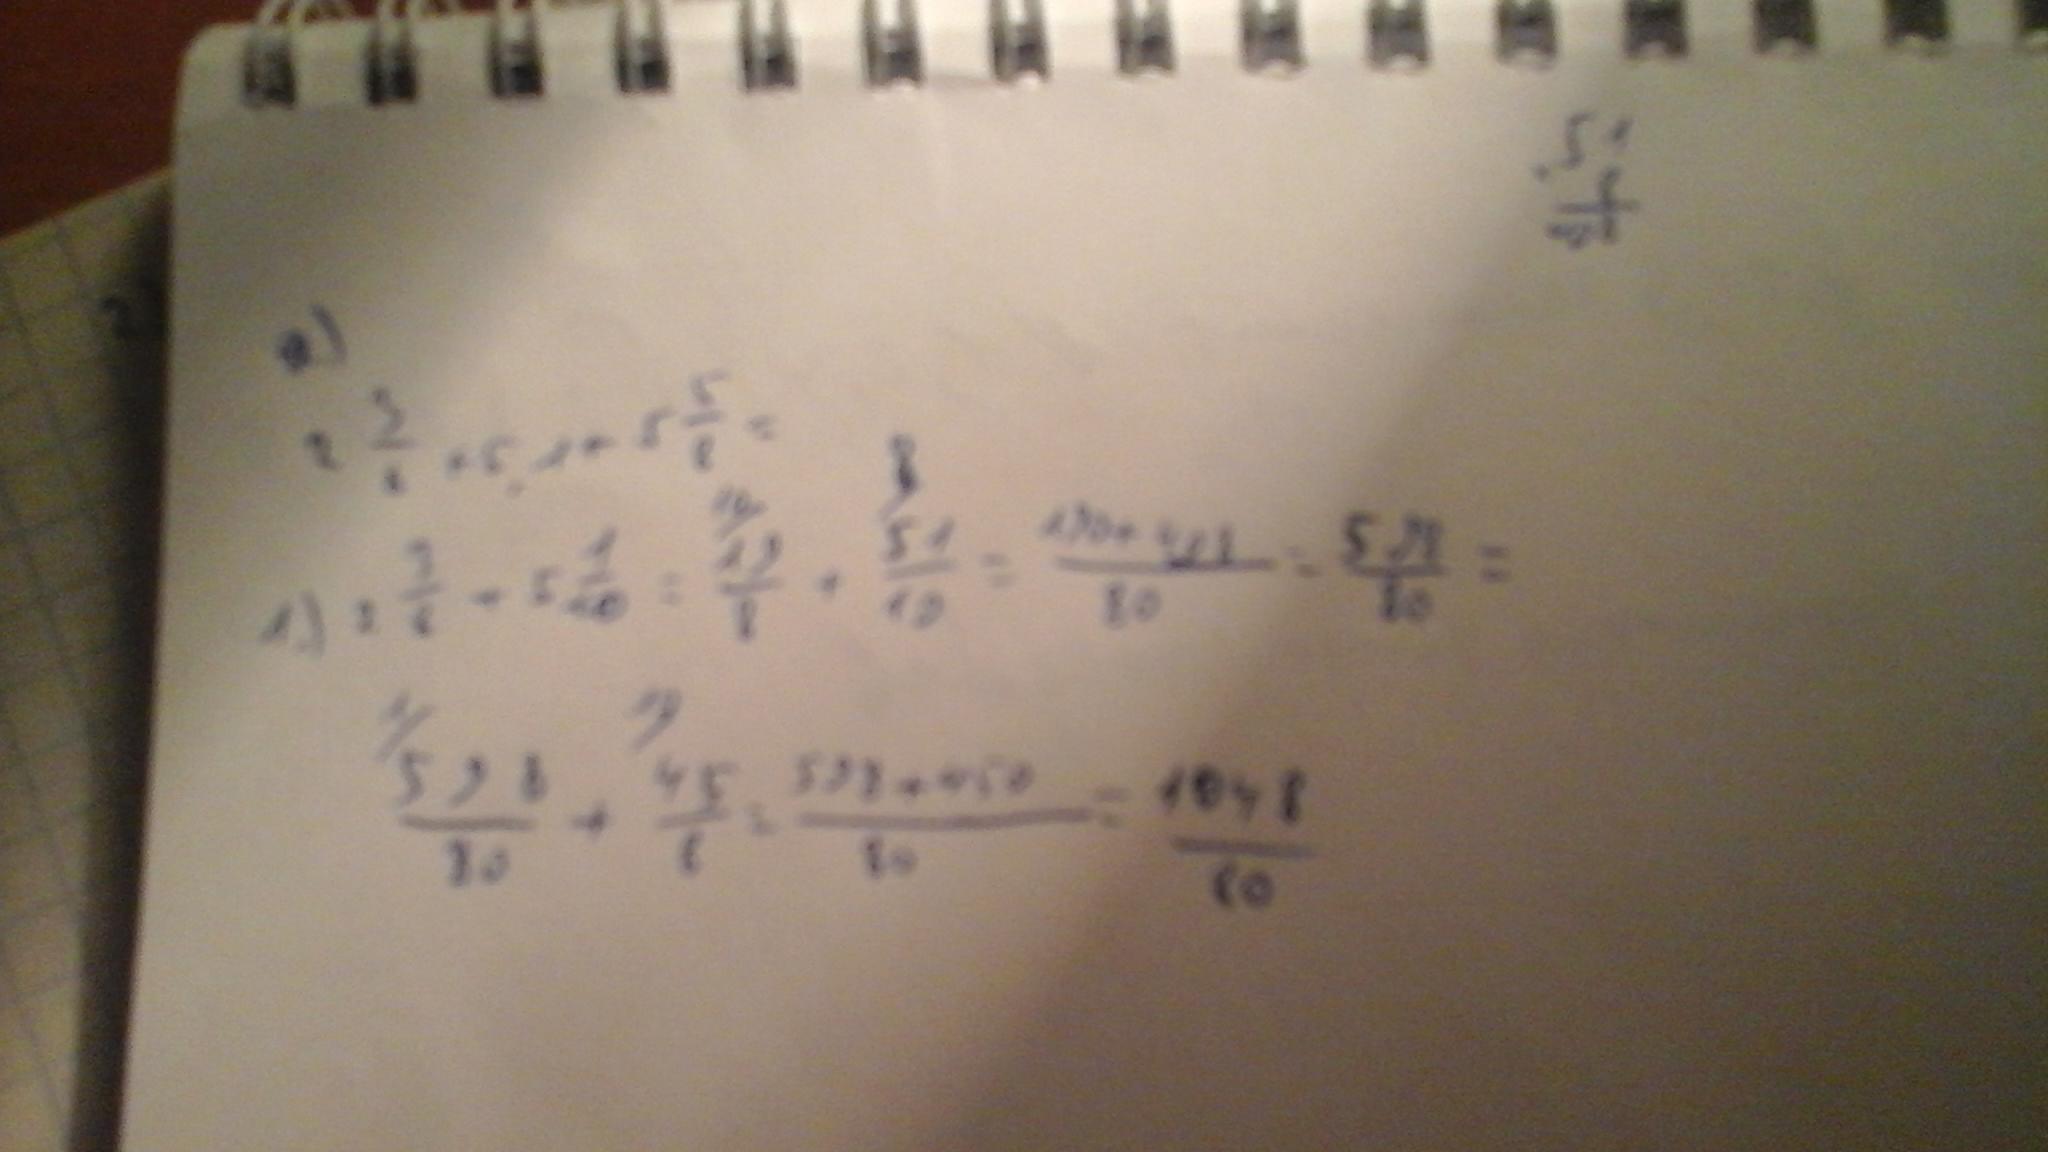 a)
2 3/8 + 5,1 + 5 5/8 =
1) 2 3/8 + 5 1/10 = 10/ 19/8 + 8/ 51/10 = 190+408/80 = 598/80 =
1/ 598/80 + 10/ 45/8 = 598+450/80 = 1048/80